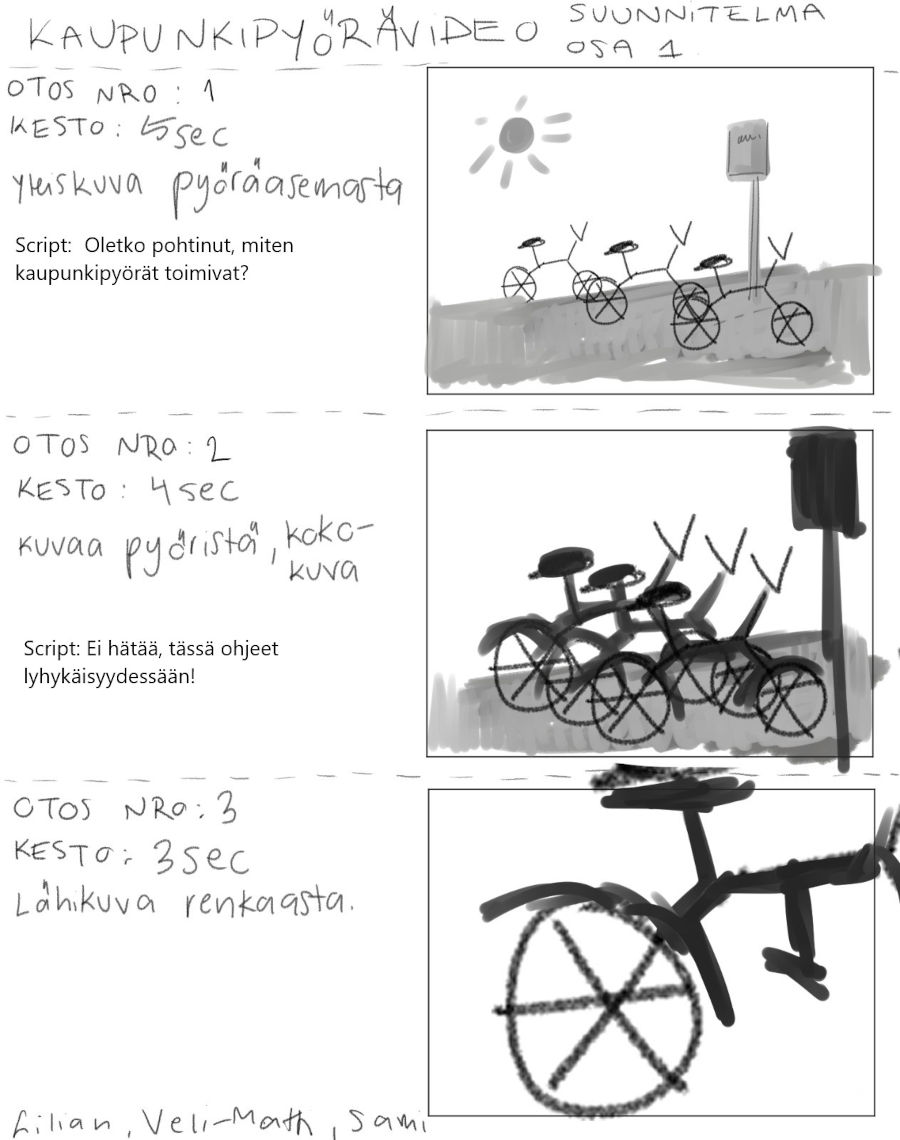 KAUPUNKIPYÖRÄVIDEO SUUNNITELMA
OSA 1
OTOS NRO: 1
KESTO: 5sec
Yleiskuva pyöräasemasta
Script: Oletko pohtinut, miten
kaupunkipyörät toimivat?
OTOS NRO: 2
KESTO: 4 sec
kuvaa pyöristä, koko-
kuva
Script: Ei hätää, tässä ohjeet
lyhykäisyydessään!
OTOS NRO: 3
KESTO: 3sec
Lähikuva renkaasta.
Lilian, Veli-Matti, Sami